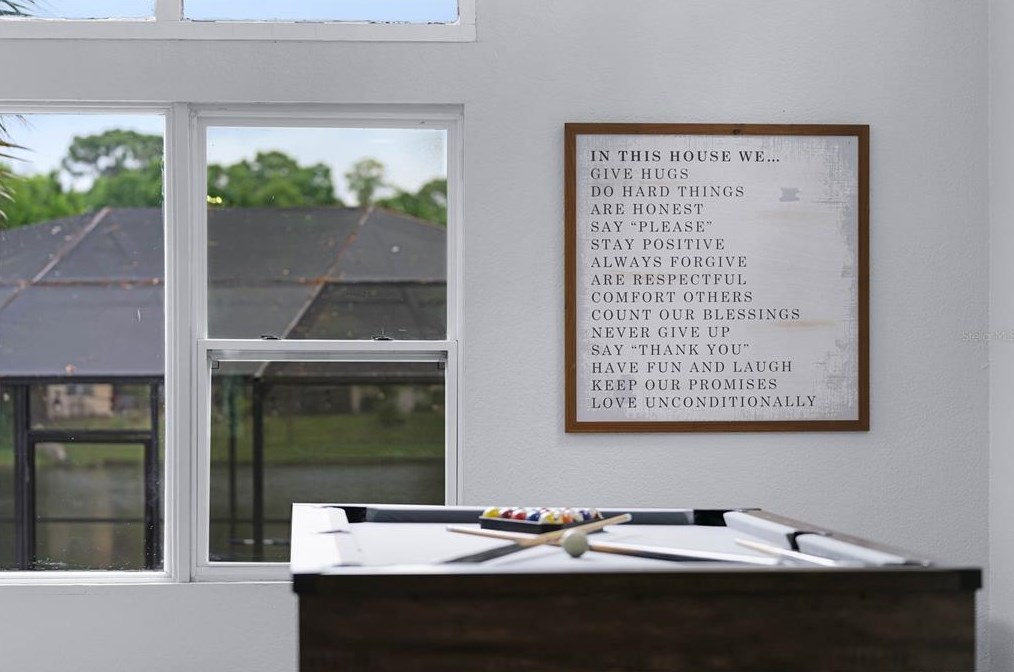 IN THIS HOUSE WE...
GIVE HUGS
DO HARD THINGS
ARE HONEST
SAY “PLEASE”
STAY POSITIVE
ALWAYS FORGIVE
ARE RESPECTFUL
COMFORT OTHERS
COUNT OUR BLESSINGS
NEVER GIVE UP
SAY “THANK YOU”
HAVE FUN AND LAUGH
KEEP OUR PROMISES
LOVE UNCONDITIONALLY